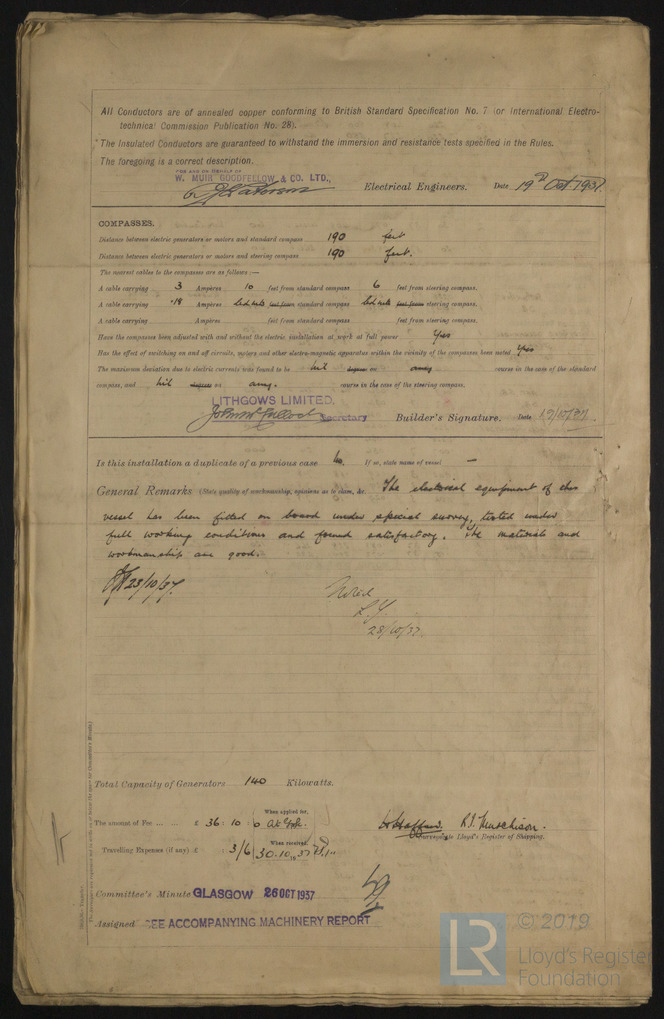 All Conductors are of annealed copper conforming to British Standard Specification No. 7 (or International Electro-
technical Commission Publication No. 28).
The Insulated Conductors are guaranteed to withstand the immersion and resistance tests specified in the Rules.
The foregoing is a correct description.
FOR AND ON BEHALF OF
W. MUIR GOODFELLOW & CO. LTD.,
Electrical Engineers. Date 19th Oct 1937
COMPASSES.
Distance between electric generators or motors and standard compass 190 feet
Distance between electric generators or motors and steering compass 190 feet.
The nearest cables to the compasses are as follows:—
A cable carrying 3 Ampères 10 feet from standard compass 6 feet from steering compass.
A cable carrying .18 Ampères led into feet from standard compass led into feet from steering compass.
A cable carrying Ampères feet from standard compass feet from steering compass.
Have the compasses been adjusted with and without the electric installation at work at full power Yes
Has the effect of switching on and off circuits, motors and other electro-magnetic apparatus within the vicinity of the compasses been noted Yes
The maximum deviation due to electric currents was found to be nil degrees on any course in the case of the standard
compass, and nil degrees on any. course in the case of the steering compass.
LITHGOWS LIMITED.
Secretary Builder's Signature. Date 19/10/37
Is this installation a duplicate of a previous case No. If so, state name of vessel —
General Remarks (State quality of workmanship, opinions as to class, &c. The electrical equipment of this
vessel has been fitted on board under special survey, tested under
full working conditions and found satisfactory. The materials and
workmanship are good.
23/10/37.
Noted
28/10/37
Total Capacity of Generators 140 Kilowatts.
When applied for,
The amount of Fee ... ... £ 36 : 10 : 0
R. J. Murchison.
Surveyor to Lloyd's Register of Shipping.
When received,
Travelling Expenses (if any) £ 3/6 30.10.1937
Committee's Minute GLASGOW 26 OCT 1937
Assigned SEE ACCOMPANYING MACHINERY REPORT
© 2019
LR
Lloyd's Register
Foundation